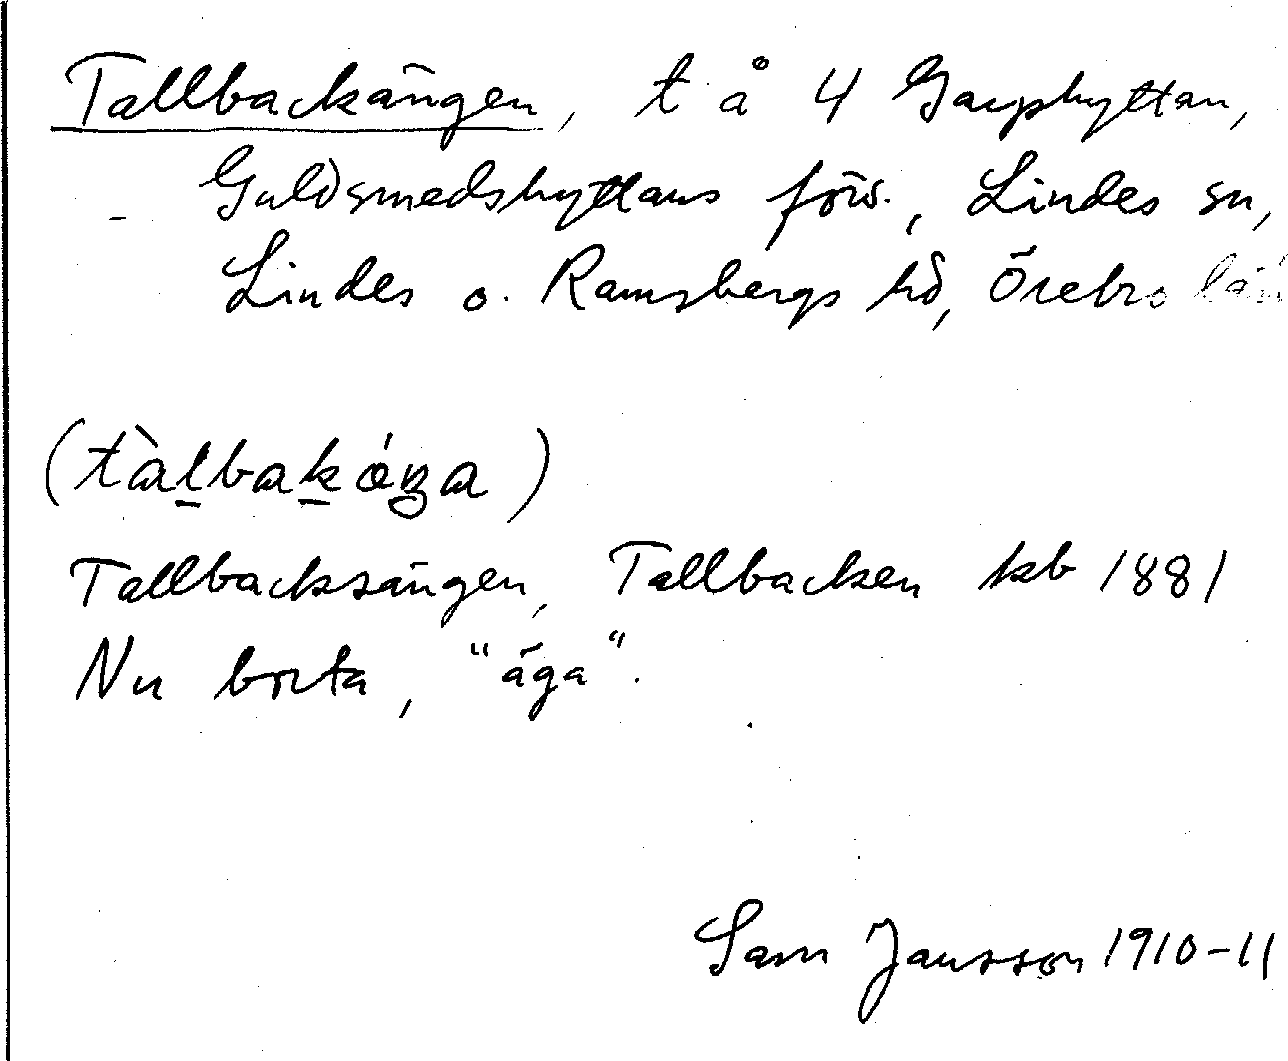 Tallbackängen, t å 4 Garphyttan,
Guldsmedshyttans förs., Lindes sn,
Lindes o. Ramsbergs hd, Örebro län
(tàḻbaḵáŋa)
Tallbacksängen, Tallbacken kb 1881
Nu borta, "äga".
Sam Jansson 1910-11